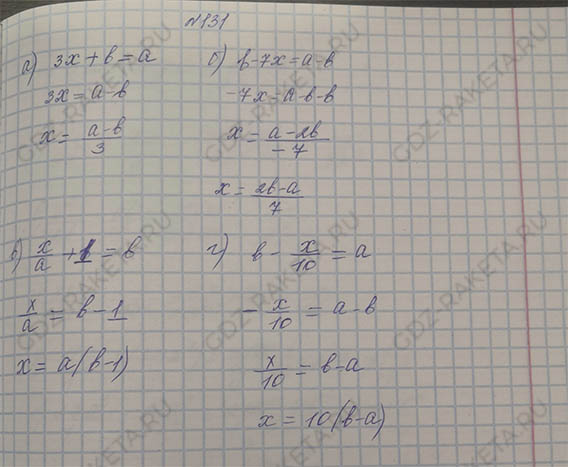 №131
а) 3x + b = a
3x = a - b
x = (a - b)/3
б) b - 7x = a - b
-7x = a - b - b
x = (a - 2b)/-7
x = (2b - a)/7
в) x/a + 1 = b
x/a = b - 1
x = a(b - 1)
г) b - x/10 = a
- x/10 = a - b
x/10 = b - a
x = 10(b - a)
GDZ-RAKETA.RU
GDZ-RAKETA.RU
GDZ-RAKETA.RU
GDZ-RAKETA.RU
GDZ-RAKETA.RU
GDZ-RAKETA.RU
GDZ-RAKETA.RU
GDZ-RAKETA.RU
GDZ-RAKETA.RU